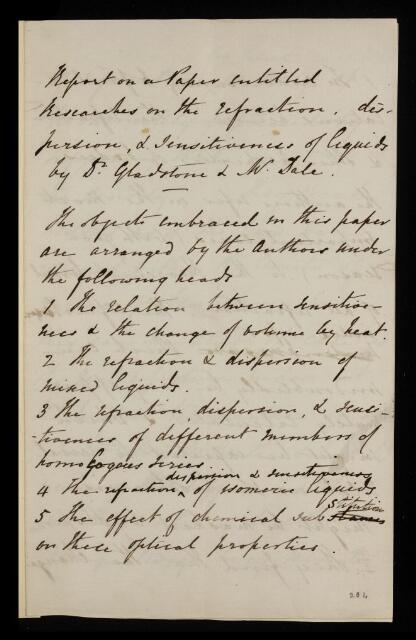 Report on a Paper entitled
Researches on the refraction, dis-
persion, & sensitiveness of liquids
by Dr. Gladstone & Mr. Dale.
The objects embraced in this paper
are arranged by the Authors under
the following heads
1 The relation between sensitive-
ness & the change of volume by heat.
2 The refraction & dispersion of
mixed liquids.
3 The refraction, dispersion, & sensi-
-tiveness of different members of
homologous series
dispersion & sensitiveness
4 The refraction ^ of isomeric liquids
stitution
5 The effect of chemical substances
on these optical properties.
204